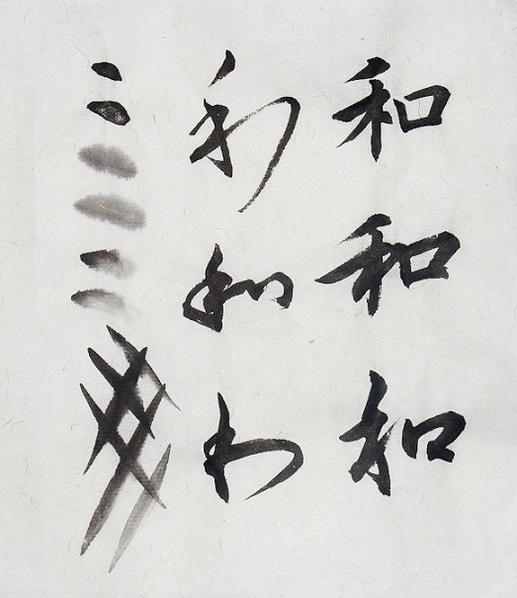 和和和
和わ